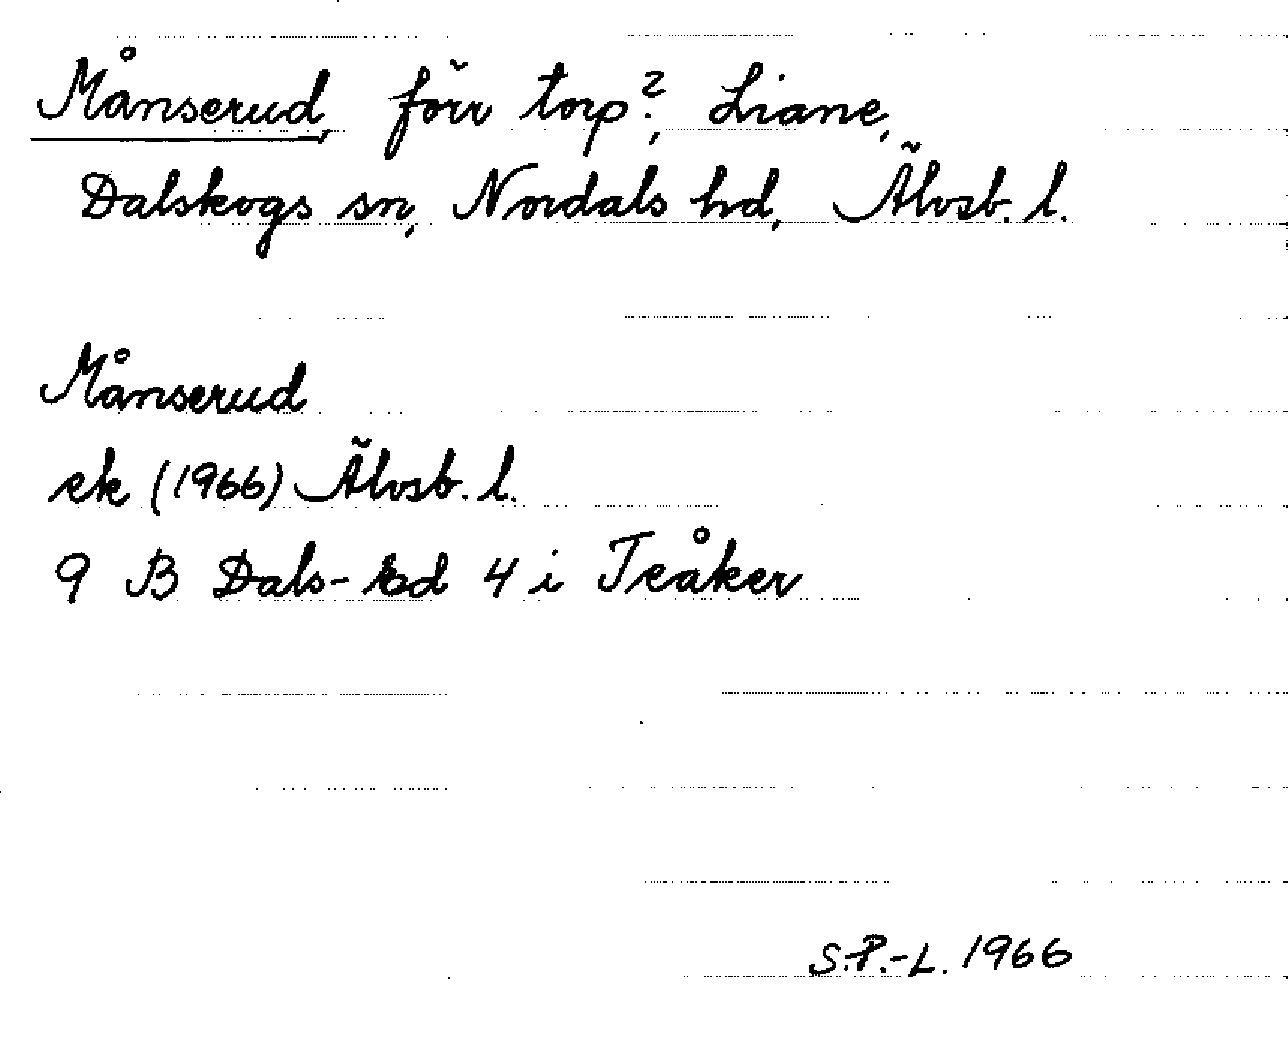 Månserud, förr torp?, Liane,
Dalskogs sn, Nordals hd, Älvsb. l.
Månserud
ek (1966) Älvsb. l.
9 B Dals-Ed 4 i Teåker
S.P.-L. 1966